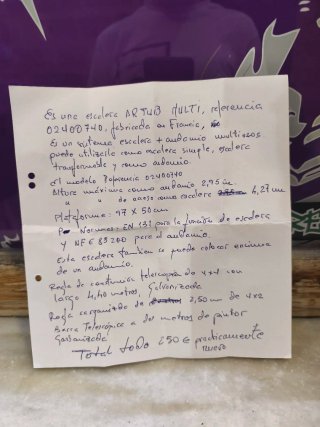 Es una escalera ARTUB MULTI, referencia
02400740, fabricada en Francia,
Es un sistema escalera + andamio multiusos
puede utilizarlo como escalera simple, escalera
transformable y como andamio.
El modelo Referencia 02400740
Altura máxima como andamio 2,95 m.
" " de acceso como escalera 6,27 m
Plataforma: 97 X 50 cm
Normas: EN 131 para la función de escalera
y NF E 85200 para el andamio.
Esta escalera tambien se puede colocar encima
de un andamio.
Regla de construccion telescopica de 4x4 con
largo 4,40 metros, Galvanizada
Regla corganizado de 2,50 m de 4x2
Barra Telescópica a dos metros de pintor
Galvanizada
Total todo 250 € practicamente
nuevo